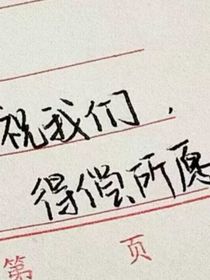 祝我们，
得偿所愿
第 页